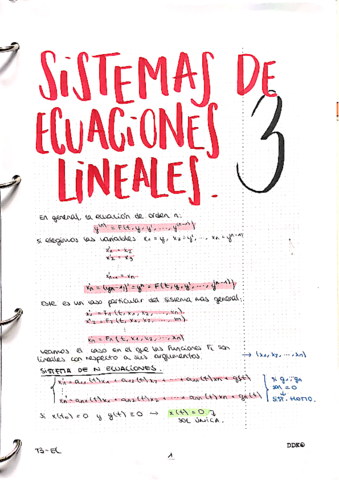 SISTEMAS DE
ECUACIONES
LINEALES. 3
En general, la ecuación de orden n:
y⁽ⁿ⁾ = F(t, y, y', ..., y⁽ⁿ⁻¹⁾)
Si elegimos las variables x₁=y, x₂=y', ... xₙ=y⁽ⁿ⁻¹⁾
x₁'=x₂
x₂'=x₃
x'ₙ₋₁=xₙ
xₙ'=(y⁽ⁿ⁻¹⁾)'=yⁿ=F(t, y, y', ..., y⁽ⁿ⁻¹⁾)
Este es un caso particular del sistema más general:
x₁'=F₁(t, x₁, x₂, ..., xₙ)
xₙ'=Fₙ(t, x₁, x₂, ..., xₙ)
Veamos el caso en el que las funciones Fᵢ son
lineales con respecto a sus argumentos. → (x₁, x₂, ..., xₙ)
SISTEMA DE N ECUACIONES.
x₁'=a₁₁(t)x₁+a₁₂(t)x₂+...+a₁ₙ(t)xₙ+g₁(t)
xₙ'=aₙ₁(t)x₁+aₙ₂(t)x₂+...+aₙₙ(t)xₙ+gₙ(t)
si g₁...gₙ
son =0
↓
SIST. HOMO.
Si x(t₀)=0 y g(t)=0 → x(t)=0 y
SOL ÚNICA.
T3-EC
1
DDK©